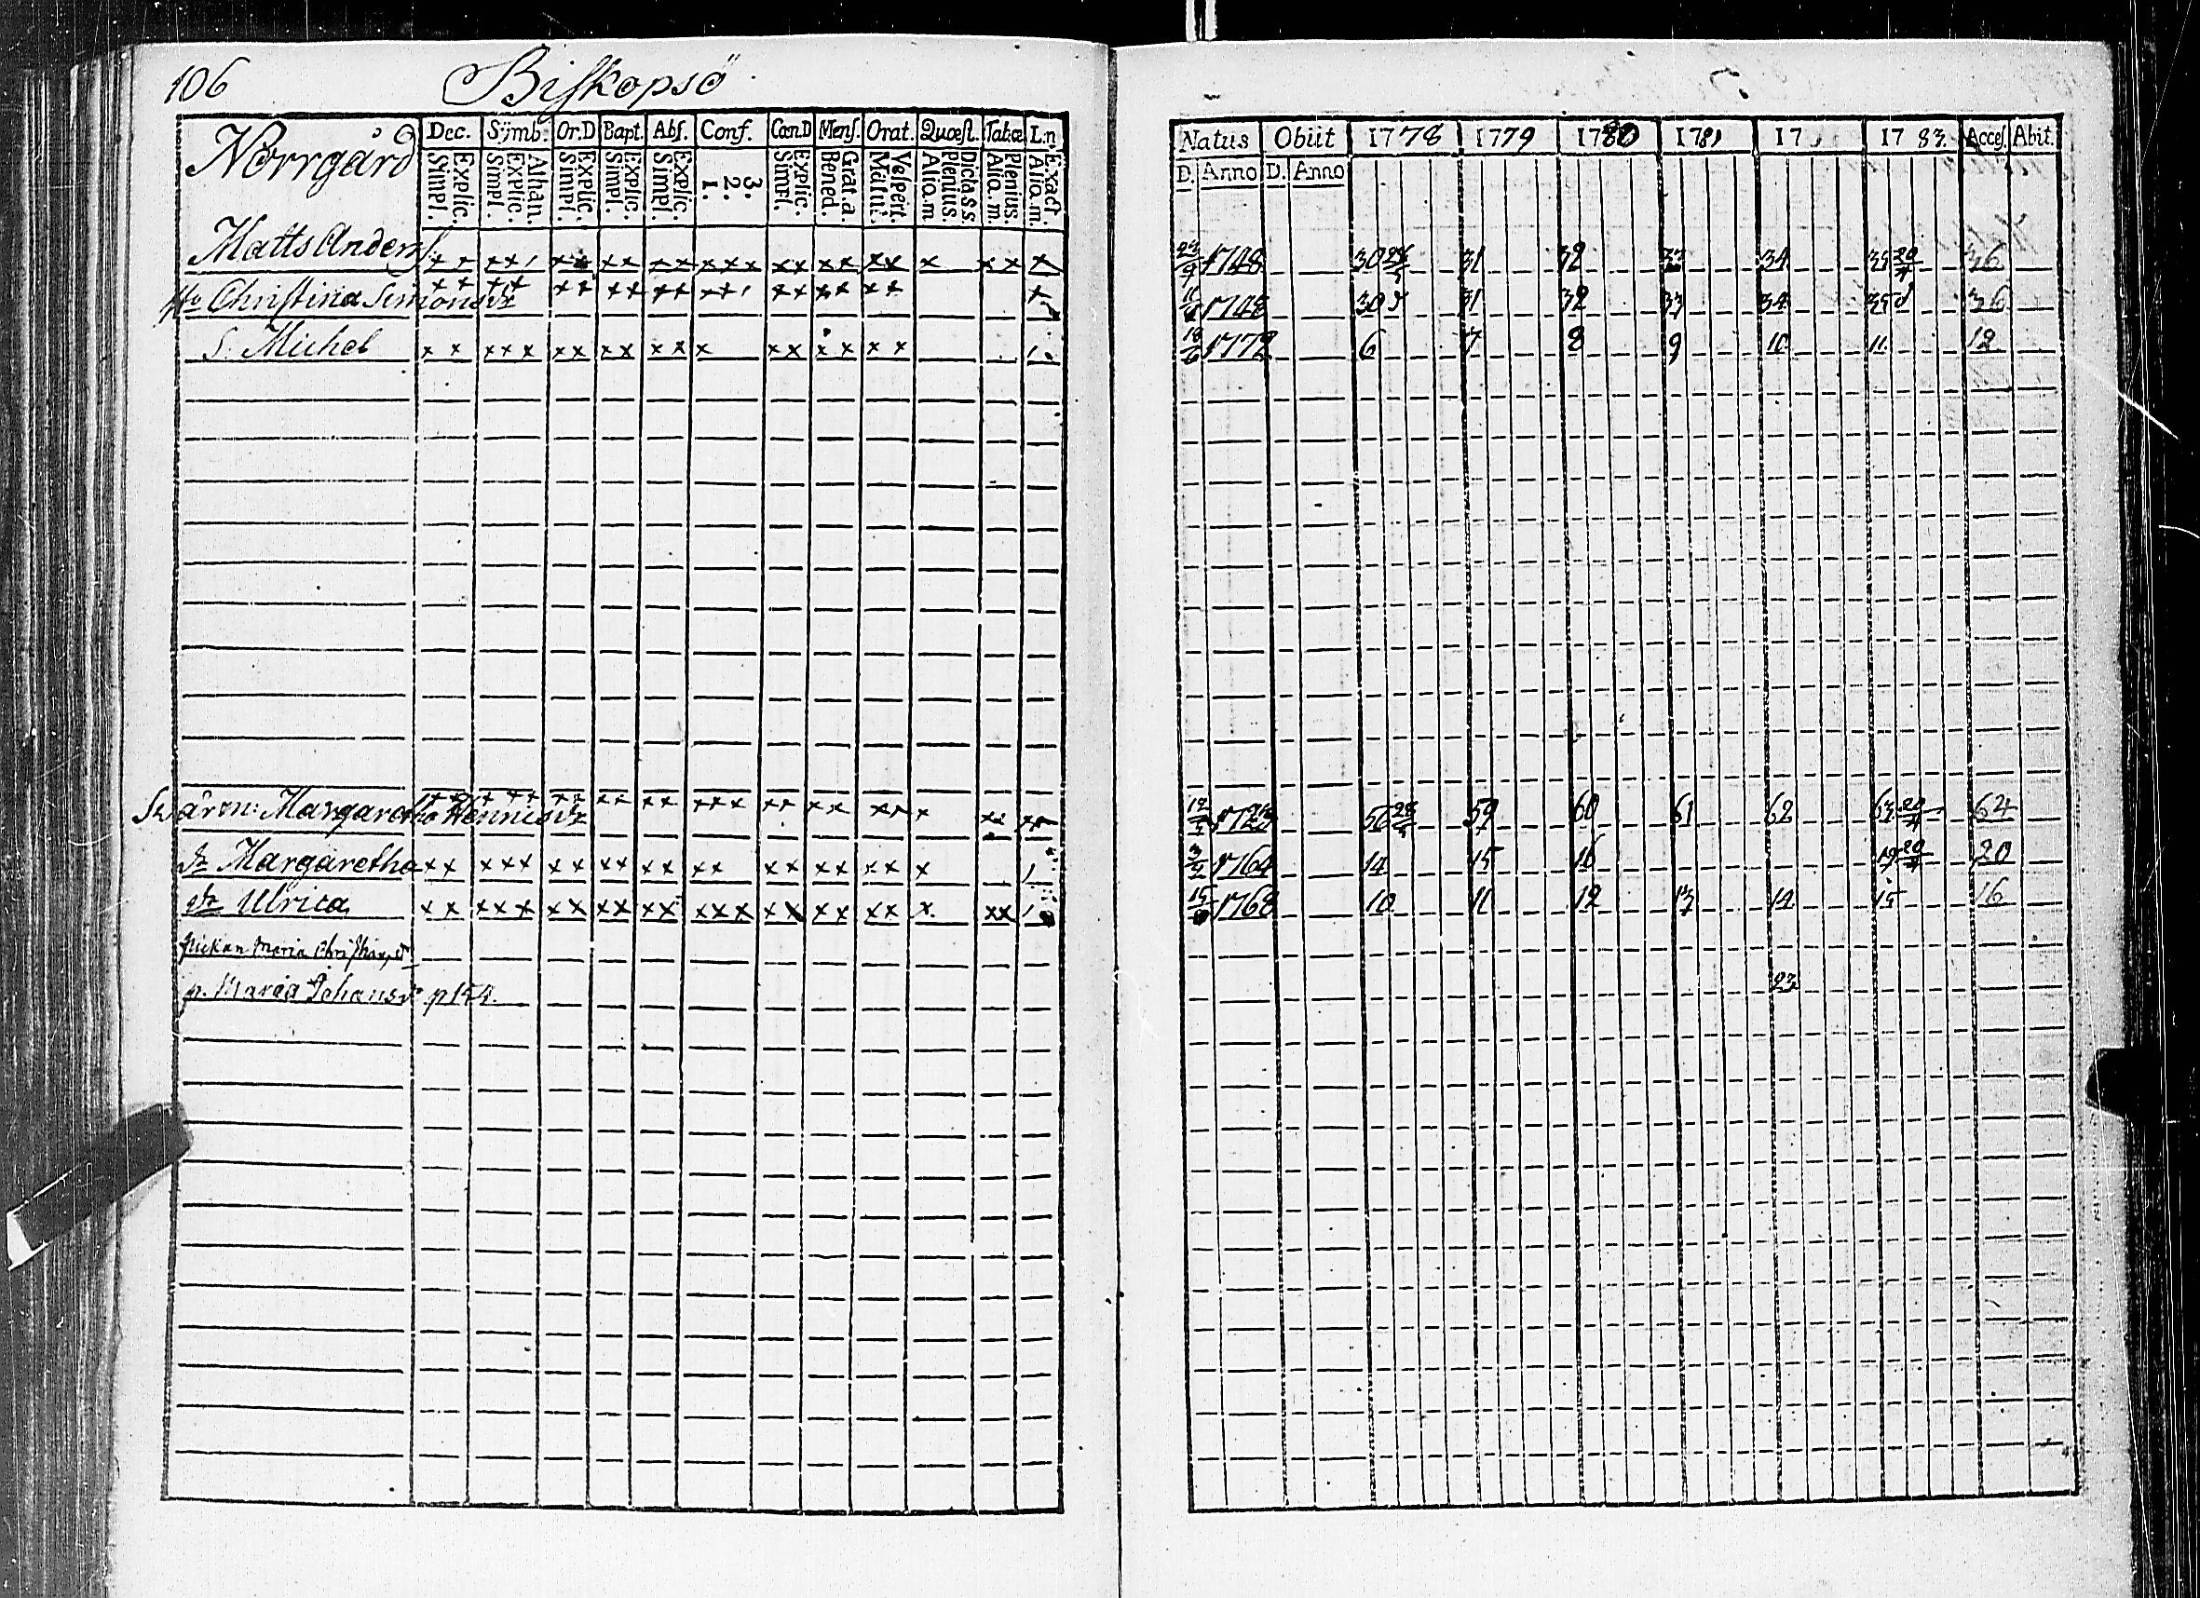 106 Biskopsö
Norrgård Dec. Sÿmb: Or.D Bapt. Abs. Conf. Cœn.D Mens. Orat. Quœst. Tabœ L:n.
Simpl. Explic. Simpl. Explic. Athan. Simpl. Explic. Simpl. Explic. Simpl. Explic. 1. 2. 3. Simpl. Explic. Bened. Grat.a. Matut. Vespert. Alio.m Plenius. Dicta s.s. Alio.m. Plenius. Alio.m. Exact
Natus Obiit 1778 1779 1780 1781 17 1783 Acces. Abit.
D. Anno D. Anno
Matts Anders s. x x x x / x x x x x x x x x x x x x x x x x x x x 24/9 1748 30 31 32 33 34 35 20/4 36
H:o Christina Simonsdr x x x x x x x x x x x x / x x x x x x x 1748 30 31 32 33 34 35 36
S. Michel x x x x x x x x x x x x x x x x x x x / 18/6 1772 6 7 8 9 10 11 12
Margareta Hennicsdr x x x x x x x x x x x x x x x x x x x x x x x 58 59 60 61 62 63 20/4 64
dr Margaretha x x x x x x x x x x x x x x x x x x x x / 3/2 1764 14 15 16 19 20/4 20
dr Ulrica x x x x x x x x x x x x x x x x x x x x x x x / 1768 10 11 12 13 14 15 16
Flickan Maria
p. Maria Johansdr 23